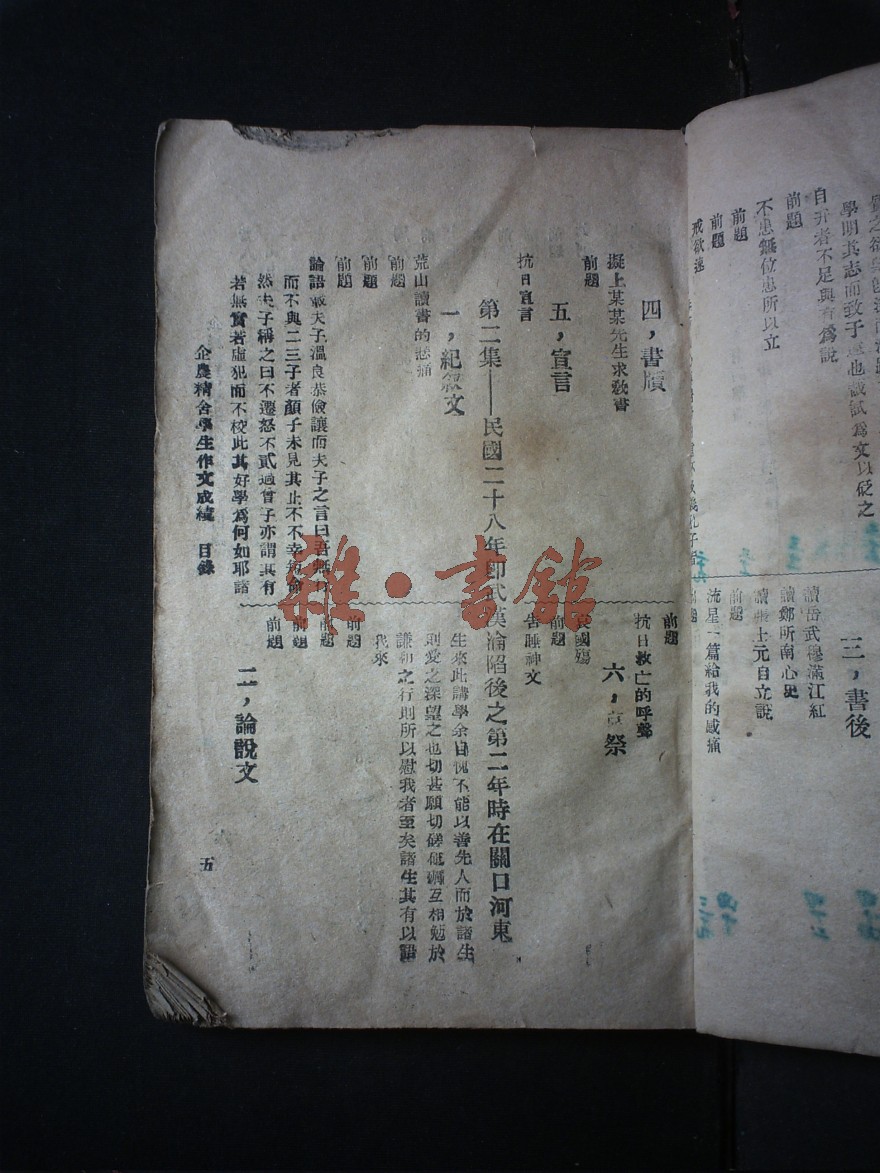 學明其志而致
自弃者不足與有為說
前題
不患無位患所以立
前題
前題
戒欲速
三，書後
讀岳武穆滿江紅
讀鄭所南心史
士元自立說
前題
流星一篇給我的感痛
前題
四，書牘
擬上某某先生求教書
前題
五，宣言
抗日宣言
前題
抗日救亡的呼聲
六，祭
哀國殤
前題
告睡神文
第二集——民國二十八年即武漢淪陷後之第二年時在關口河東
一，紀敘文
荒山讀書的悲痛
前題
前題
前題
論語載夫子溫良恭儉讓而夫子之言曰吾無
而不與二三子者顏子未見其止不幸短命
然夫子稱之曰不遷怒不貳過曾子亦謂其有
若無實若虛犯而不校此其好學為何如耶諸
生來此講學余自愧不能以善先人而於諸生
則愛之深望之也切甚願切磋砥礪互相勉於
謙和之行則所以慰我者至矣諸生其有以語
我來
前題
前題
前題
前題
二，論說文
企農精舍學生作文成績 目錄
五
雜·書館